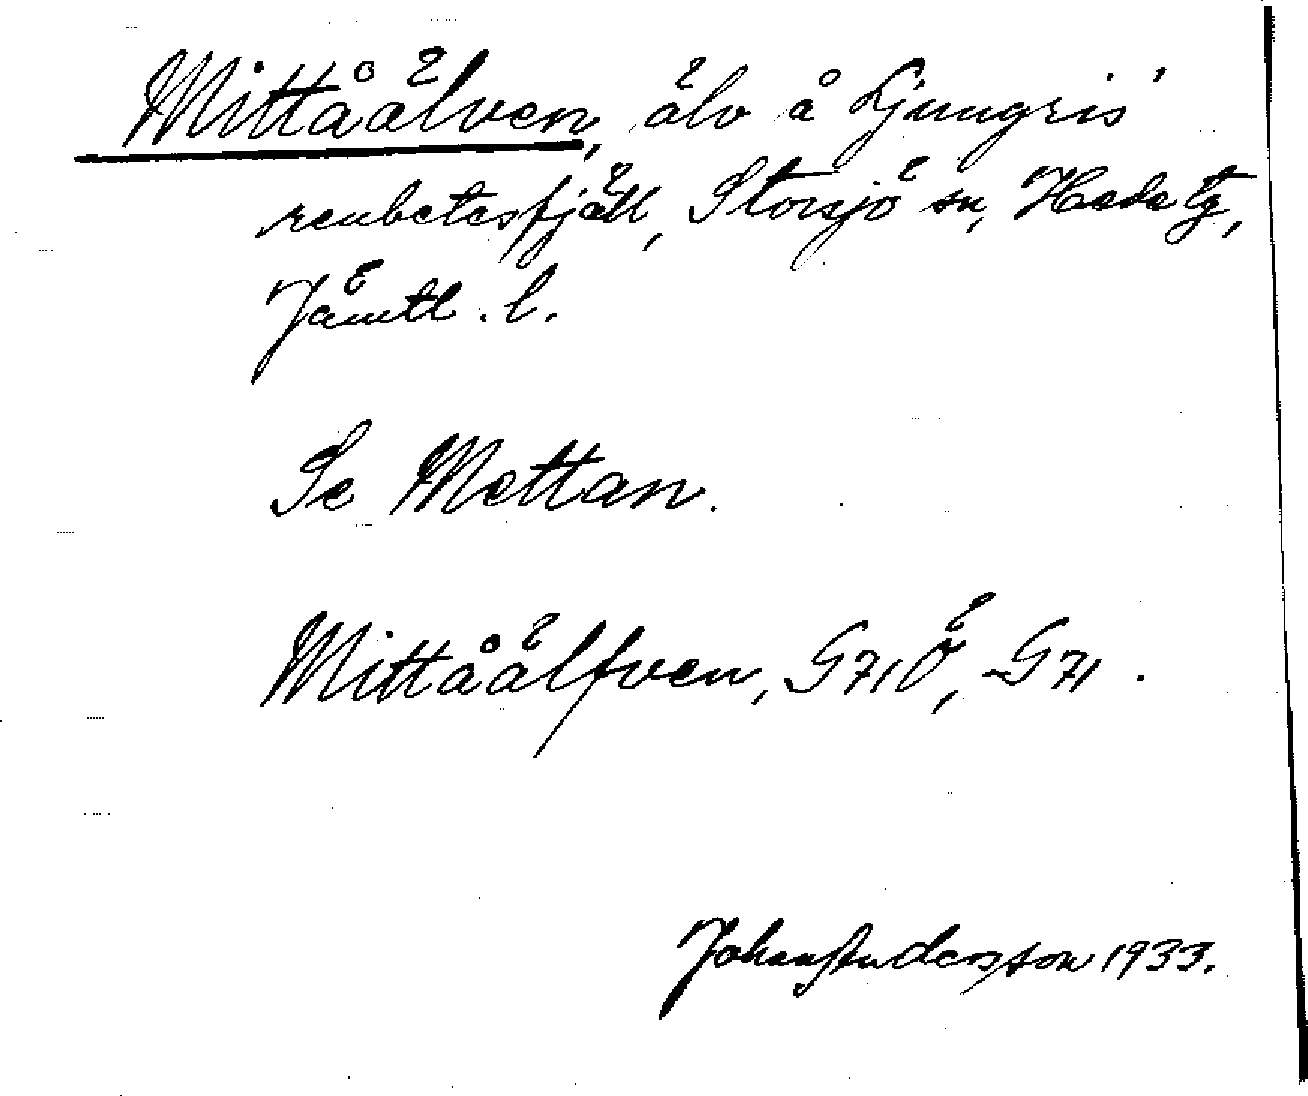 Mittåälven, älv å Ljungris'
renbetesfjäll, Storsjö sn, Hede tg,
Jämtl. l.
Se Mettan.
Mittåälfven, G71Ö, G71.
Johan Andersson 1933.